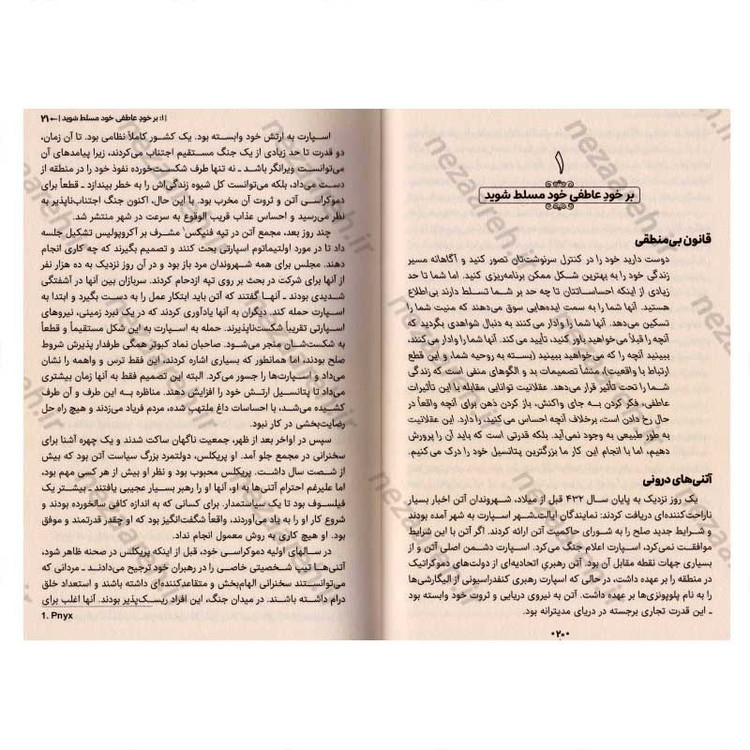 ۱
بر خودِ عاطفی خود مسلط شوید
قانون بی‌منطقی
دوست دارید خود را در کنترل سرنوشت‌تان تصور کنید و آگاهانه مسیر
زندگی خود را به بهترین شکل ممکن برنامه‌ریزی کنید. اما شما تا حد
زیادی از اینکه احساساتتان تا چه حد بر شما تسلط دارند بی‌اطلاع
هستید. آنها شما را به سمت ایده‌هایی سوق می‌دهند که منیت شما را
تسکین می‌دهد. آنها شما را وادار می‌کنند به دنبال شواهدی بگردید که
آنچه را قبلاً می‌خواهید باور کنید، تأیید می‌کند. آنها شما را وادار می‌کنند،
ببینید آنچه را که می‌خواهید ببینید (بسته به روحیه شما، و این قطع
ارتباط با واقعیت)، منشأ تصمیمات بد و الگوهای منفی است که زندگی
شما را تحت تأثیر قرار می‌دهد. عقلانیت توانایی مقابله با این تأثیرات
عاطفی، فکر کردن به جای واکنش، باز کردن ذهن برای آنچه واقعاً در
حال رخ دادن است، برخلاف آنچه احساس می‌کنید، را دارد. این عقلانیت
به طور طبیعی به وجود نمی‌آید. بلکه قدرتی است که باید آن را پرورش
دهیم، اما با انجام این کار ما بزرگترین پتانسیل خود را درک می‌کنیم.
آتنی‌های درونی
یک روز نزدیک به پایان سال ۴۳۲ قبل از میلاد، شهروندان آتن اخبار بسیار
ناراحت‌کننده‌ای دریافت کردند: نمایندگان ایالت‌شهر اسپارت به شهر آمده بودند
و شرایط جدید صلح را به شورای حاکمیت آتن ارائه کردند. اگر آتن با این شرایط
موافقت نمی‌کرد، اسپارت اعلام جنگ می‌کرد. اسپارت دشمن اصلی آتن و از
بسیاری جهات نقطه مقابل آن بود. آتن رهبری اتحادیه‌ای از دولت‌های دموکراتیک
در منطقه را بر عهده داشت، در حالی که اسپارت رهبری کنفدراسیونی از الیگارشی‌ها
را به نام پلوپونزی‌ها بر عهده داشت. آتن به نیروی دریایی و ثروت خود وابسته بود
ـ این قدرت تجاری برجسته در دریای مدیترانه بود.
۲۰
۱: بر خودِ عاطفی خود مسلط شوید | ۲۱
اسپارت به ارتش خود وابسته بود. یک کشور کاملاً نظامی بود. تا آن زمان،
دو قدرت تا حد زیادی از یک جنگ مستقیم اجتناب می‌کردند، زیرا پیامدهای آن
می‌توانست ویرانگر باشد ـ نه تنها طرف شکست‌خورده نفوذ خود را در منطقه از
دست می‌داد، بلکه می‌توانست کل شیوه زندگی‌اش را به خطر بیندازد ـ قطعاً برای
دموکراسی آتن و ثروت آن مخرب بود. با این حال، اکنون جنگ اجتناب‌ناپذیر به
نظر می‌رسید و احساس عذاب قریب الوقوع به سرعت در شهر منتشر شد.
چند روز بعد، مجمع آتن در تپه فنیکس۱ مشرف بر آکروپولیس تشکیل جلسه
داد تا در مورد اولتیماتوم اسپارتی بحث کنند و تصمیم بگیرند که چه کاری انجام
دهند. مجلس برای همه شهروندان مرد باز بود و در آن روز نزدیک به ده هزار نفر
از آنها برای شرکت در بحث بر روی تپه ازدحام کردند. سربازان بین آنها در آشفتگی
شدیدی بودند ـ آنها گفتند که آتن باید ابتکار عمل را به دست بگیرد و ابتدا به
اسپارت حمله کند. دیگران به آنها یادآوری کردند که در یک نبرد زمینی، نیروهای
اسپارتی تقریباً شکست‌ناپذیرند. حمله به اسپارت به این شکل مستقیماً و قطعاً
به شکست‌شان منجر می‌شود. صاحبان نماد کبوتر همگی طرفدار پذیرش شروط
صلح بودند، اما همانطور که بسیاری اشاره کردند، این فقط ترس و واهمه را نشان
می‌داد و اسپارت‌ها را جسور می‌کرد. البته این تصمیم فقط به آنها زمان بیشتری
می‌داد تا پتانسیل ارتش خود را افزایش دهند. مناظره به این طرف و آن طرف
کشیده می‌شد، با احساسات داغ ملتهب شده، مردم فریاد می‌زدند و هیچ راه حل
رضایت‌بخشی در کار نبود.
سپس در اواخر بعد از ظهر، جمعیت ناگهان ساکت شدند و یک چهره آشنا برای
سخنرانی در مجمع جلو آمد. او پریکلس، دولتمرد بزرگ سیاست آتن بود که بیش
از شصت سال داشت. پریکلس محبوب بود و نظر او بیش از هر کسی مهم بود،
اما علیرغم احترام آتنی‌ها به او، آنها او را رهبر بسیار عجیبی یافتند ـ بیشتر یک
فیلسوف بود تا یک سیاستمدار. برای کسانی که به اندازه کافی سالخورده بودند و
شروع کار او را به یاد می‌آوردند، واقعاً شگفت‌انگیز بود که او چقدر قدرتمند و موفق
بود. او هیچ کاری به روش معمول انجام نداد.
در سالهای اولیه دموکراسی خود، قبل از اینکه پریکلس در صحنه ظاهر شود،
آتنی‌ها تیپ شخصیتی خاصی را در رهبران خود ترجیح می‌دادند ـ مردانی که
می‌توانستند سخنرانی الهام‌بخش و متقاعدکننده‌ای داشته باشند و استعداد خلق
درام داشته باشند. در میدان جنگ، این افراد ریسک‌پذیر بودند. آنها اغلب برای
1. Pnyx
nezaareh.ir